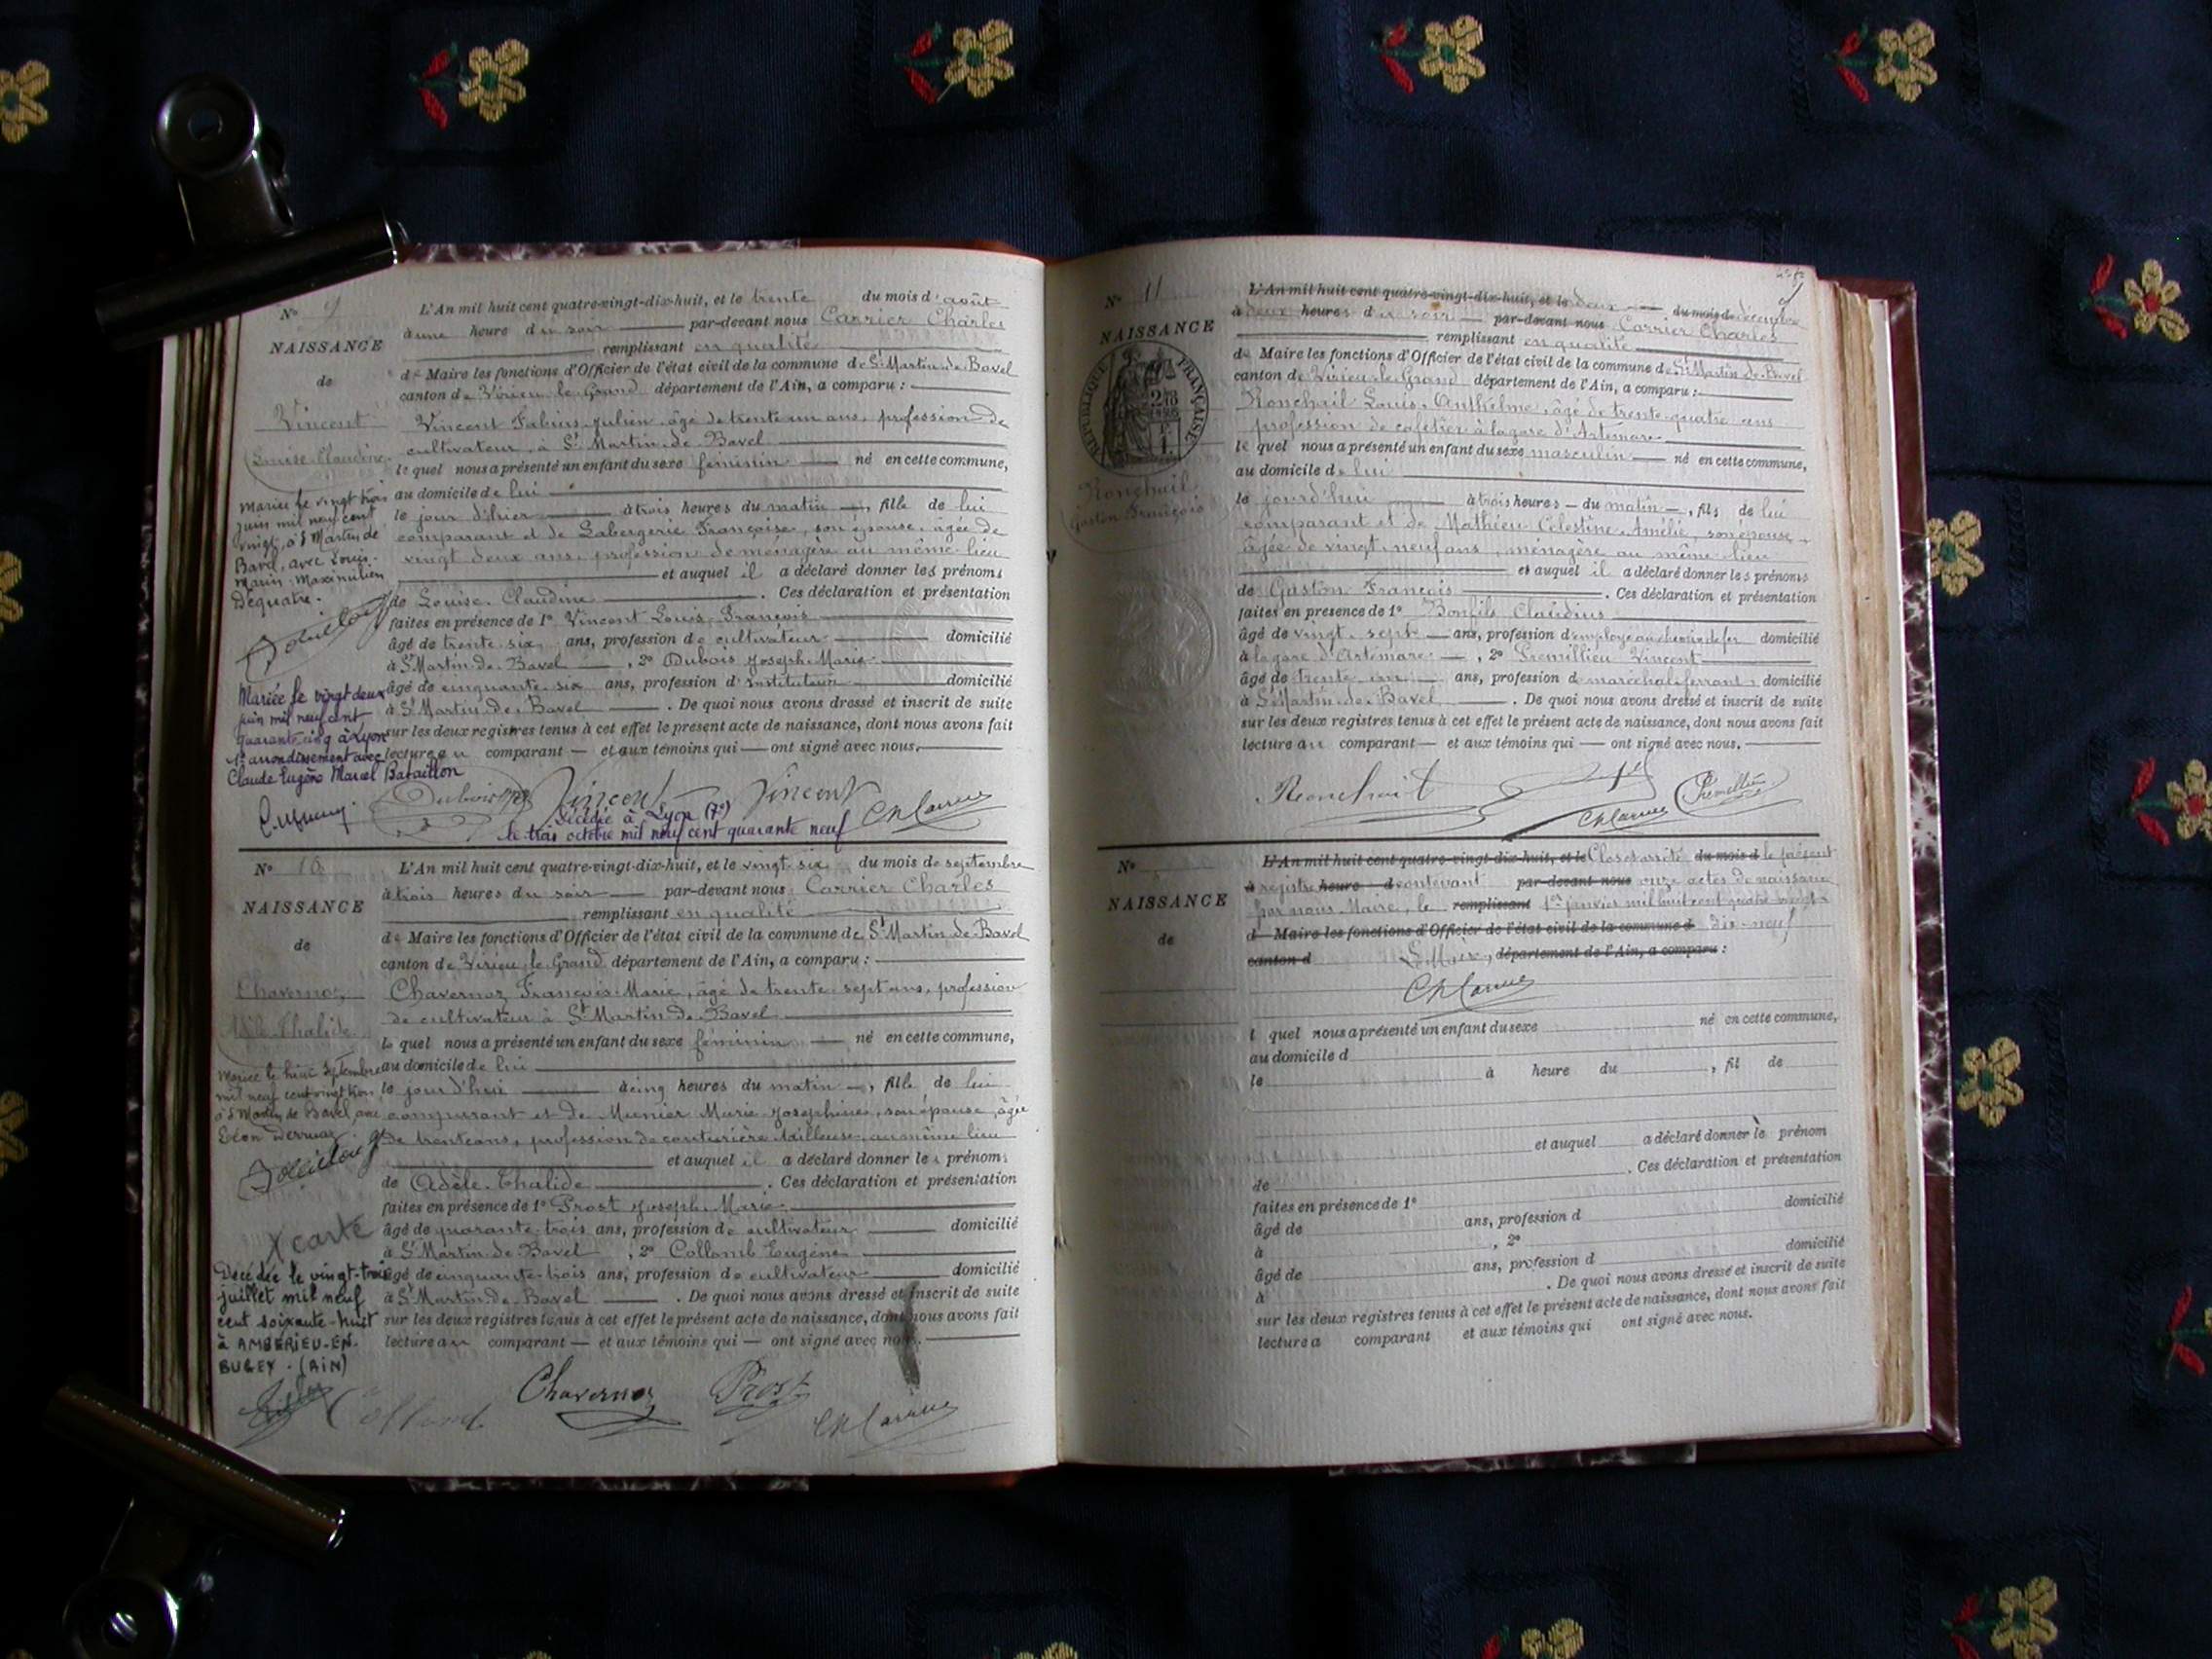 N° 9
NAISSANCE
de
Vincent
Louise Claudine
Mariée le vingt trois
juin mil neuf cent
vingt, à St Martin de
Bavel, avec Louis
Marin Maximilien
Dequatre.
Mariée le vingt deux
juin mil neuf cent
quarante cinq à Lyon
arrondissement avec
Claude Eugène Marcel Bataillon
L'An mil huit cent quatre-vingt-dix-huit, et le trente du mois d'août
à une heure du soir par-devant nous Carrier Charles
remplissant en qualité
de Maire les fonctions d'Officier de l'état civil de la commune de St Martin de Bavel
canton de Virieu le Grand département de l'Ain, a comparu :
Vincent Fabius Julien, âgé de trente un ans, profession de
cultivateur, à St Martin de Bavel
le quel nous a présenté un enfant du sexe féminin né en cette commune,
au domicile de lui
le jour d'hier à trois heures du matin, fille de lui
comparant et de Labergerie Françoise, son épouse, âgée de
vingt deux ans, profession de ménagère au même lieu
et auquel il a déclaré donner les prénoms
de Louise Claudine. Ces déclaration et présentation
faites en présence de 1° Vincent Louis François
âgé de trente six ans, profession de cultivateur domicilié
à St Martin de Bavel, 2° Dubois Joseph Marie
âgé de cinquante six ans, profession d'instituteur domicilié
à St Martin de Bavel. De quoi nous avons dressé et inscrit de suite
sur les deux registres tenus à cet effet le présent acte de naissance, dont nous avons fait
lecture au comparant et aux témoins qui ont signé avec nous.
Dubois Vincent Vincent Ch Carrier
Décédée à Lyon (7e)
le trois octobre mil neuf cent quarante neuf
N° 10
NAISSANCE
de
Chavernoz
Adèle Thalide
Mariée le huit Septembre
mil neuf cent vingt trois
à St Martin de Bavel, avec
Léon Derruaz
X carte
Décédée le vingt-trois
juillet mil neuf
cent soixante-huit
à AMBERIEU-EN-
BUGEY. (AIN)
L'An mil huit cent quatre-vingt-dix-huit, et le vingt six du mois de septembre
à trois heures du soir par-devant nous Carrier Charles
remplissant en qualité
de Maire les fonctions d'Officier de l'état civil de la commune de St Martin de Bavel
canton de Virieu le Grand département de l'Ain, a comparu :
Chavernoz François Marie, âgé de trente sept ans, profession
de cultivateur à St Martin de Bavel
le quel nous a présenté un enfant du sexe féminin né en cette commune,
au domicile de lui
le jour d'hui à cinq heures du matin, fille de lui
comparant et de Munier Marie Joséphine, son épouse, âgée
de trente ans, profession de couturière tailleuse, au même lieu
et auquel il a déclaré donner les prénoms
de Adèle Thalide. Ces déclaration et présentation
faites en présence de 1° Prost Joseph Marie
âgé de quarante trois ans, profession de cultivateur domicilié
à St Martin de Bavel, 2° Collomb Eugène
âgé de cinquante-trois ans, profession de cultivateur domicilié
à St Martin de Bavel. De quoi nous avons dressé et inscrit de suite
sur les deux registres tenus à cet effet le présent acte de naissance, dont nous avons fait
lecture au comparant et aux témoins qui ont signé avec nous.
Collomb Chavernoz Prost Ch Carrier
N° 11
NAISSANCE
RÉPUBLIQUE FRANÇAISE
Ronchail
Gaston François
L'An mil huit cent quatre-vingt-dix-huit, et le deux du mois de décembre
à deux heures du soir par-devant nous Carrier Charles
remplissant en qualité
de Maire les fonctions d'Officier de l'état civil de la commune de St Martin de Bavel
canton de Virieu le Grand département de l'Ain, a comparu :
Ronchail Louis Anthelme, âgé de trente quatre ans
profession de cafetier à la gare d'Artemare
le quel nous a présenté un enfant du sexe masculin né en cette commune,
au domicile de lui
le jourd'hui à trois heures du matin, fils de lui
comparant et de Mathieu Célestine Amélie, son épouse
âgée de vingt neuf ans, ménagère au même lieu
et auquel il a déclaré donner les prénoms
de Gaston François. Ces déclaration et présentation
faites en présence de 1° Bonfils Claudius
âgé de vingt sept ans, profession d'employé au chemin de fer domicilié
à la gare d'Artemare, 2° Premillieu Vincent
âgé de trente un ans, profession de maréchal ferrant domicilié
à St Martin de Bavel. De quoi nous avons dressé et inscrit de suite
sur les deux registres tenus à cet effet le présent acte de naissance, dont nous avons fait
lecture au comparant et aux témoins qui ont signé avec nous.
Ronchail Ch Carrier Premillieu
N°
NAISSANCE
de
L'An mil huit cent quatre-vingt-dix-huit, et le Clos et arrêté du mois d le présent
à registre heure d contenant par-devant nous onze actes de naissance
par nous Maire, le remplissant 1er janvier mil huit cent quatre vingt
d Maire les fonctions d'Officier de l'état civil de la commune d dix-neuf
canton d Le Maire, département de l'Ain, a comparu :
Ch Carrier
l quel nous a présenté un enfant du sexe né en cette commune,
au domicile d
le à heure du , fil de
et auquel a déclaré donner le prénom
de . Ces déclaration et présentation
faites en présence de 1°
âgé de ans, profession d domicilié
à , 2°
âgé de ans, profession d domicilié
à . De quoi nous avons dressé et inscrit de suite
sur les deux registres tenus à cet effet le présent acte de naissance, dont nous avons fait
lecture a comparant et aux témoins qui ont signé avec nous.